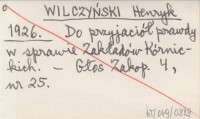 WILCZYŃSKI Henryk
1926. Do przyjaciół prawdy
w sprawie Zakładów Kórnic-
kich. – Głos Zakop. 4,
nr 25.